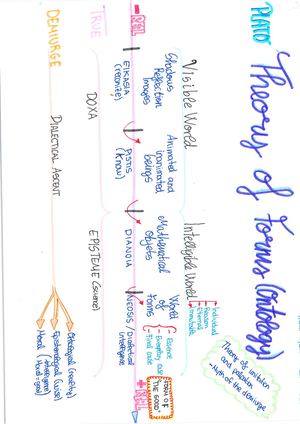 PLATO
Theory of Forms (Ontology)
Theory of imitation
and patation
-Myth of the demiurge
Visible World
Intelligible World
Individual
Reason
Eternal
Immutable
Shadows
Reflection
Images
Animated and
inanimated
beings
Mathematical
Objects
World
of
forms
Essence
Exemplary cause
Final cause
IDEA OF
"THE GOOD"
- REAL
+ REAL
EIKASIA
(recreate)
PISTIS
(know)
DIANOIA
NOESIS / Dialectical
intelligence
TRUE
DOXA
EPISTEME (science)
DEMIURGE
DIALECTICAL ASCENT
Ontological (reality)
Epistemological (wise)
(intelligence)
Moral (Good=goal)